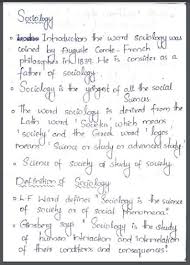 Sociology
Introduction the word sociology was
coined by Auguste Comte - French
philosopher in 1839. He is consider as a
father of sociology.
Sociology is the youngest of all the social
Sciences
The word sociology is derived from the
Latin word 'Societus' which means
'society' and the Greek word 'logos'
means study or advanced study
Science of society or study of society
Definition of Sociology
L F Ward defines "Sociology is the science
of society or of social phenomena".
Ginsberg says "Sociology is the study
of human interaction and interrelation
of their conditions and consequences".